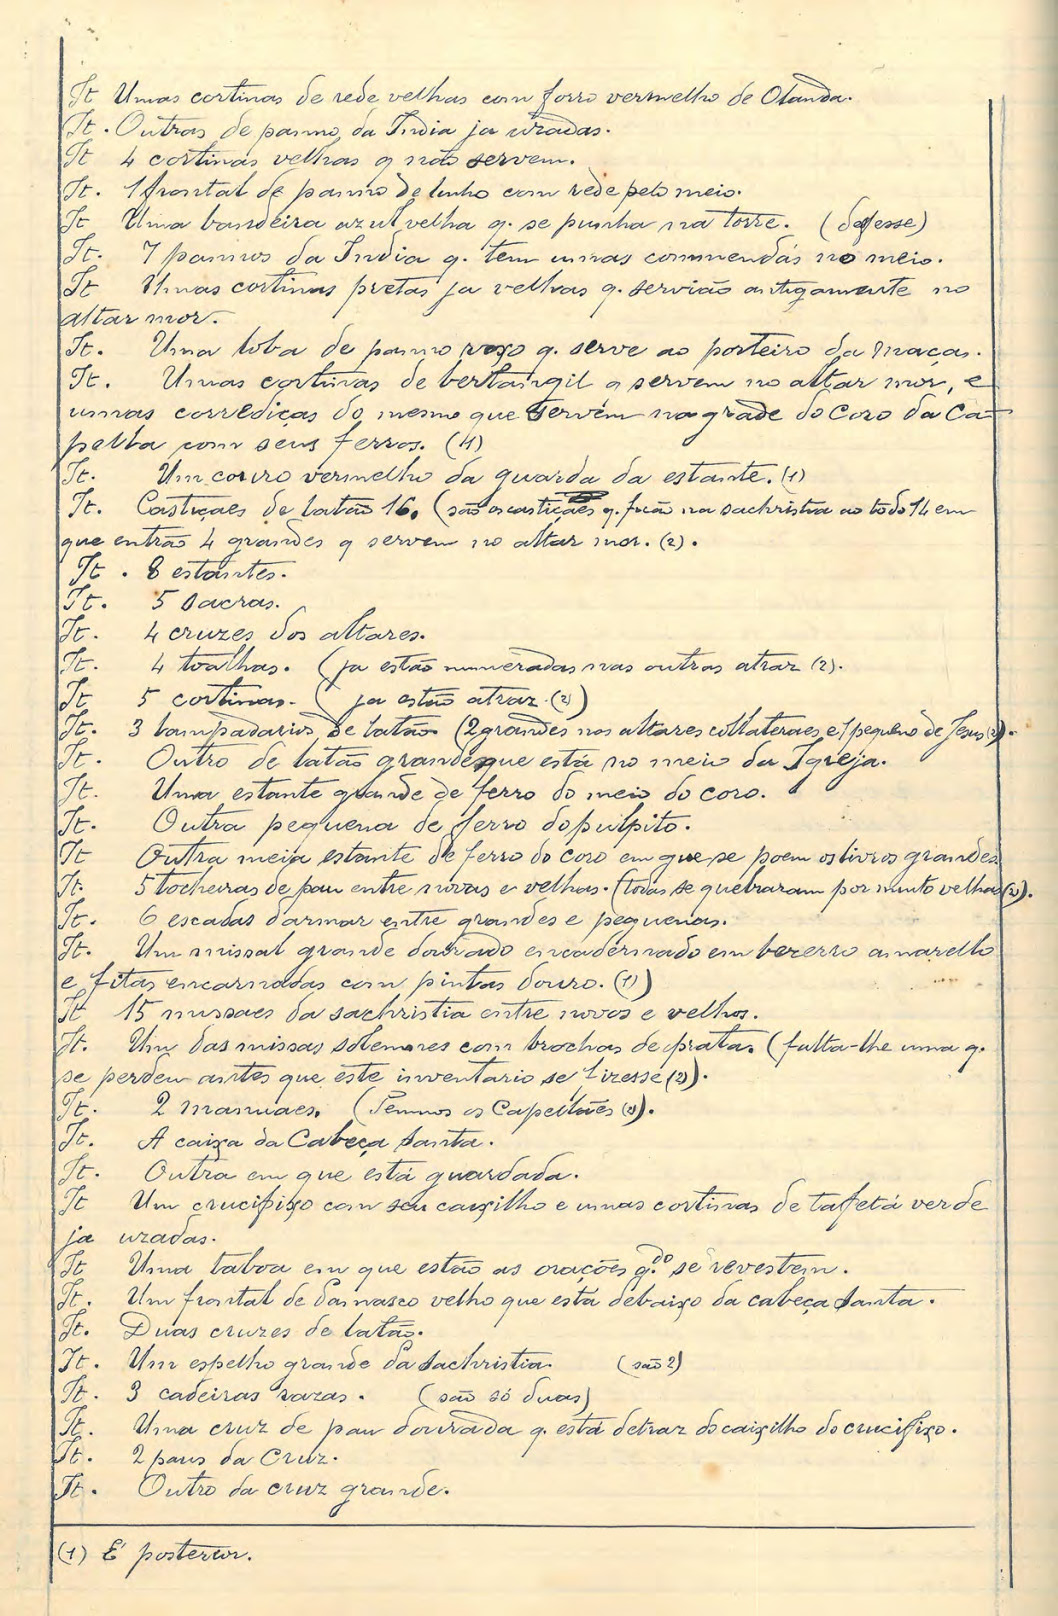 It Umas cortinas de rede velhas com forro vermelho de Olanda.
It. Outras de panno da India ja uzadas.
It 4 cortinas velhas q não servem.
It. 1 frontal de panno de linho com rede pelo meio.
It Uma bandeira azul velha q. se punha na torre. (desfesse)
It. 7 pannos da India q. tem umas commendas no meio.
It Umas cortinas pretas ja velhas q. servião antigamente no
altar mor.
It. Uma loba de panno roxo q. serve ao porteiro da Maças.
It. Umas cortinas de bertangil q servem no altar mor, e
umas corrediças do mesmo que servem na grade do Coro da Ca-
pella com seus ferros. (1)
It. Um couro vermelho da guarda da estante. (1)
It. Castiçaes de latão 16. (são os castiçães q. ficão na sachristia ao todo 14 em
que entrão 4 grandes q servem no altar mor. (2).
It. 8 estantes.
It. 5 sacras.
It. 4 cruzes dos altares.
It. 4 toalhas. (ja estão numeradas nas outras atraz (2).
It 5 cortinas. (ja estão atraz. (2))
It. 3 lampadarios de latão (2 grandes nos altares collateraes e 1 pequeno de Jesus (2)).
It. Outro de latão grande que está no meio da Igreja.
It. Uma estante grande de ferro do meio do coro.
It. Outra pequena de ferro do pulpito.
It Outra meia estante de ferro do coro em que se poem os livros grandes
It. 5 tocheiras de pau entre novas e velhas. (todas se quebraram por muito velhas (2)).
It. 6 escadas d'armar entre grandes e pequenas.
It. Um missal grande dourado encadernado em bezerro amarello
e fitas encarnadas com pintas douro. (1)
It 15 missaes da sachristia entre novos e velhos.
It. Um das missas solemnes com brochas de prata. (falta-lhe uma q.
se perdeu antes que este inventario se fizesse (2)).
It. 2 manuaes. (Temnos os Capellães (2)).
It. A caixa da Cabeça Santa.
It. Outra em que está guardada.
It Um crucifixo com seu caixilho e umas cortinas de tafetá verde
ja uzadas.
It Uma taboa em que estão as orações q.do se revestem.
It. Um frontal de damasco velho que está debaixo da cabeça Santa.
It. Duas cruzes de latão.
It. Um espelho grande da Sachristia. (são 2)
It. 3 cadeiras razas. (são só duas)
It. Uma cruz de pau dourada q. está detraz do caixilho do crucifixo.
It. 2 paus da Cruz.
It. Outro da cruz grande.
(1) É posterior.